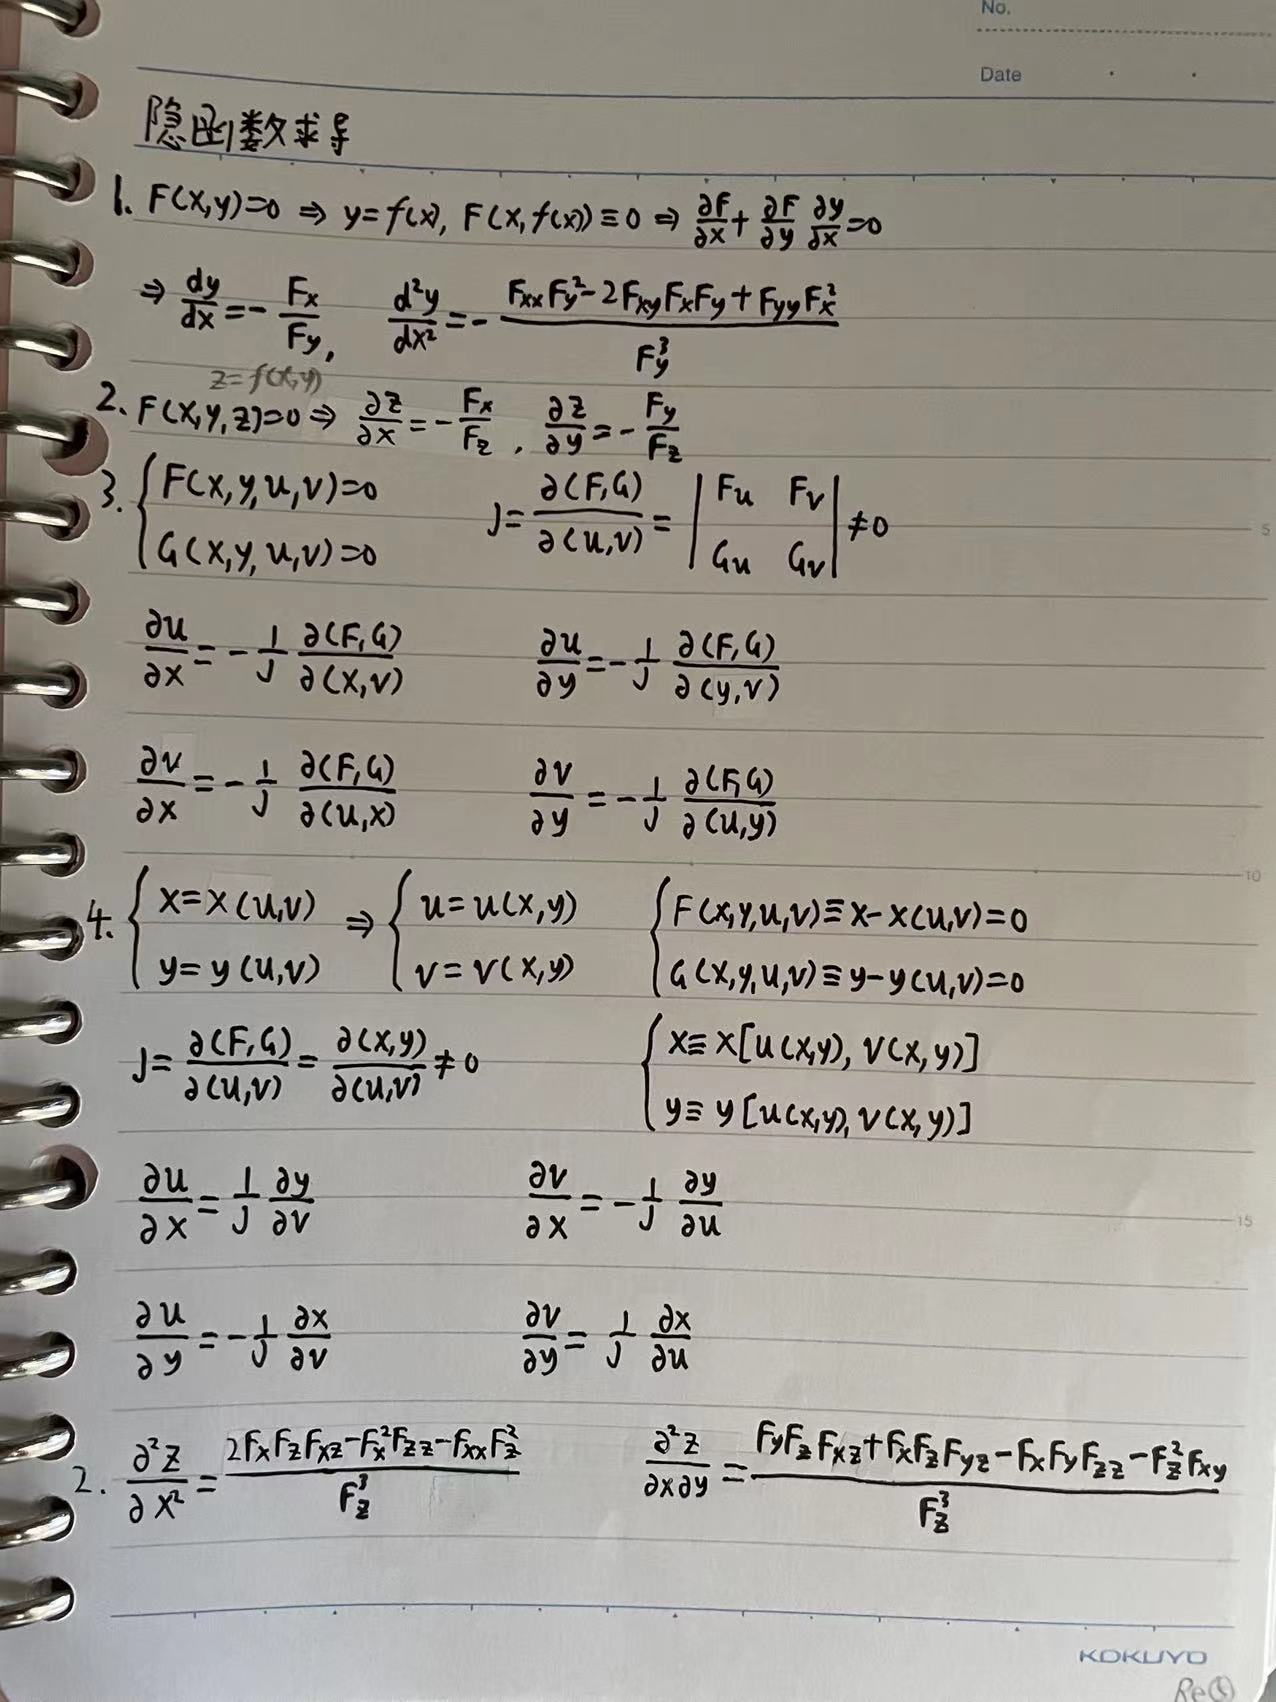 No.
Date
隐函数求导
1. F(x,y)=0 ⇒ y=f(x), F(x,f(x))≡0 ⇒ ∂F/∂x + ∂F/∂y ∂y/∂x =0
⇒ dy/dx = - Fx/Fy, d²y/dx² = - (Fxx Fy² - 2Fxy Fx Fy + Fyy Fx²)/Fy³
z=f(x,y)
2. F(x,y,z)=0 ⇒ ∂z/∂x = - Fx/Fz, ∂z/∂y = - Fy/Fz
3. { F(x,y,u,v)=0 J = ∂(F,G)/∂(u,v) = | Fu Fv | ≠0
G(x,y,u,v)=0 | Gu Gv |
∂u/∂x = - 1/J ∂(F,G)/∂(x,v) ∂u/∂y = - 1/J ∂(F,G)/∂(y,v)
∂v/∂x = - 1/J ∂(F,G)/∂(u,x) ∂v/∂y = - 1/J ∂(F,G)/∂(u,y)
4. { x=x(u,v) ⇒ { u=u(x,y) { F(x,y,u,v)≡x-x(u,v)=0
y=y(u,v) v=v(x,y) G(x,y,u,v)≡y-y(u,v)=0
J = ∂(F,G)/∂(u,v) = ∂(x,y)/∂(u,v) ≠0 { x≡x[u(x,y), v(x,y)]
y≡y[u(x,y), v(x,y)]
∂u/∂x = 1/J ∂y/∂v ∂v/∂x = - 1/J ∂y/∂u
∂u/∂y = - 1/J ∂x/∂v ∂v/∂y = 1/J ∂x/∂u
2. ∂²z/∂x² = (2Fx Fz Fxz - Fx² Fzz - Fxx Fz²)/Fz³ ∂²z/∂x∂y = (Fy Fz Fxz + Fx Fz Fyz - Fx Fy Fzz - Fz² Fxy)/Fz³
5
10
15
KOKUYO